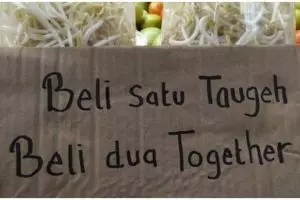 Beli satu Taugeh
Beli dua Together